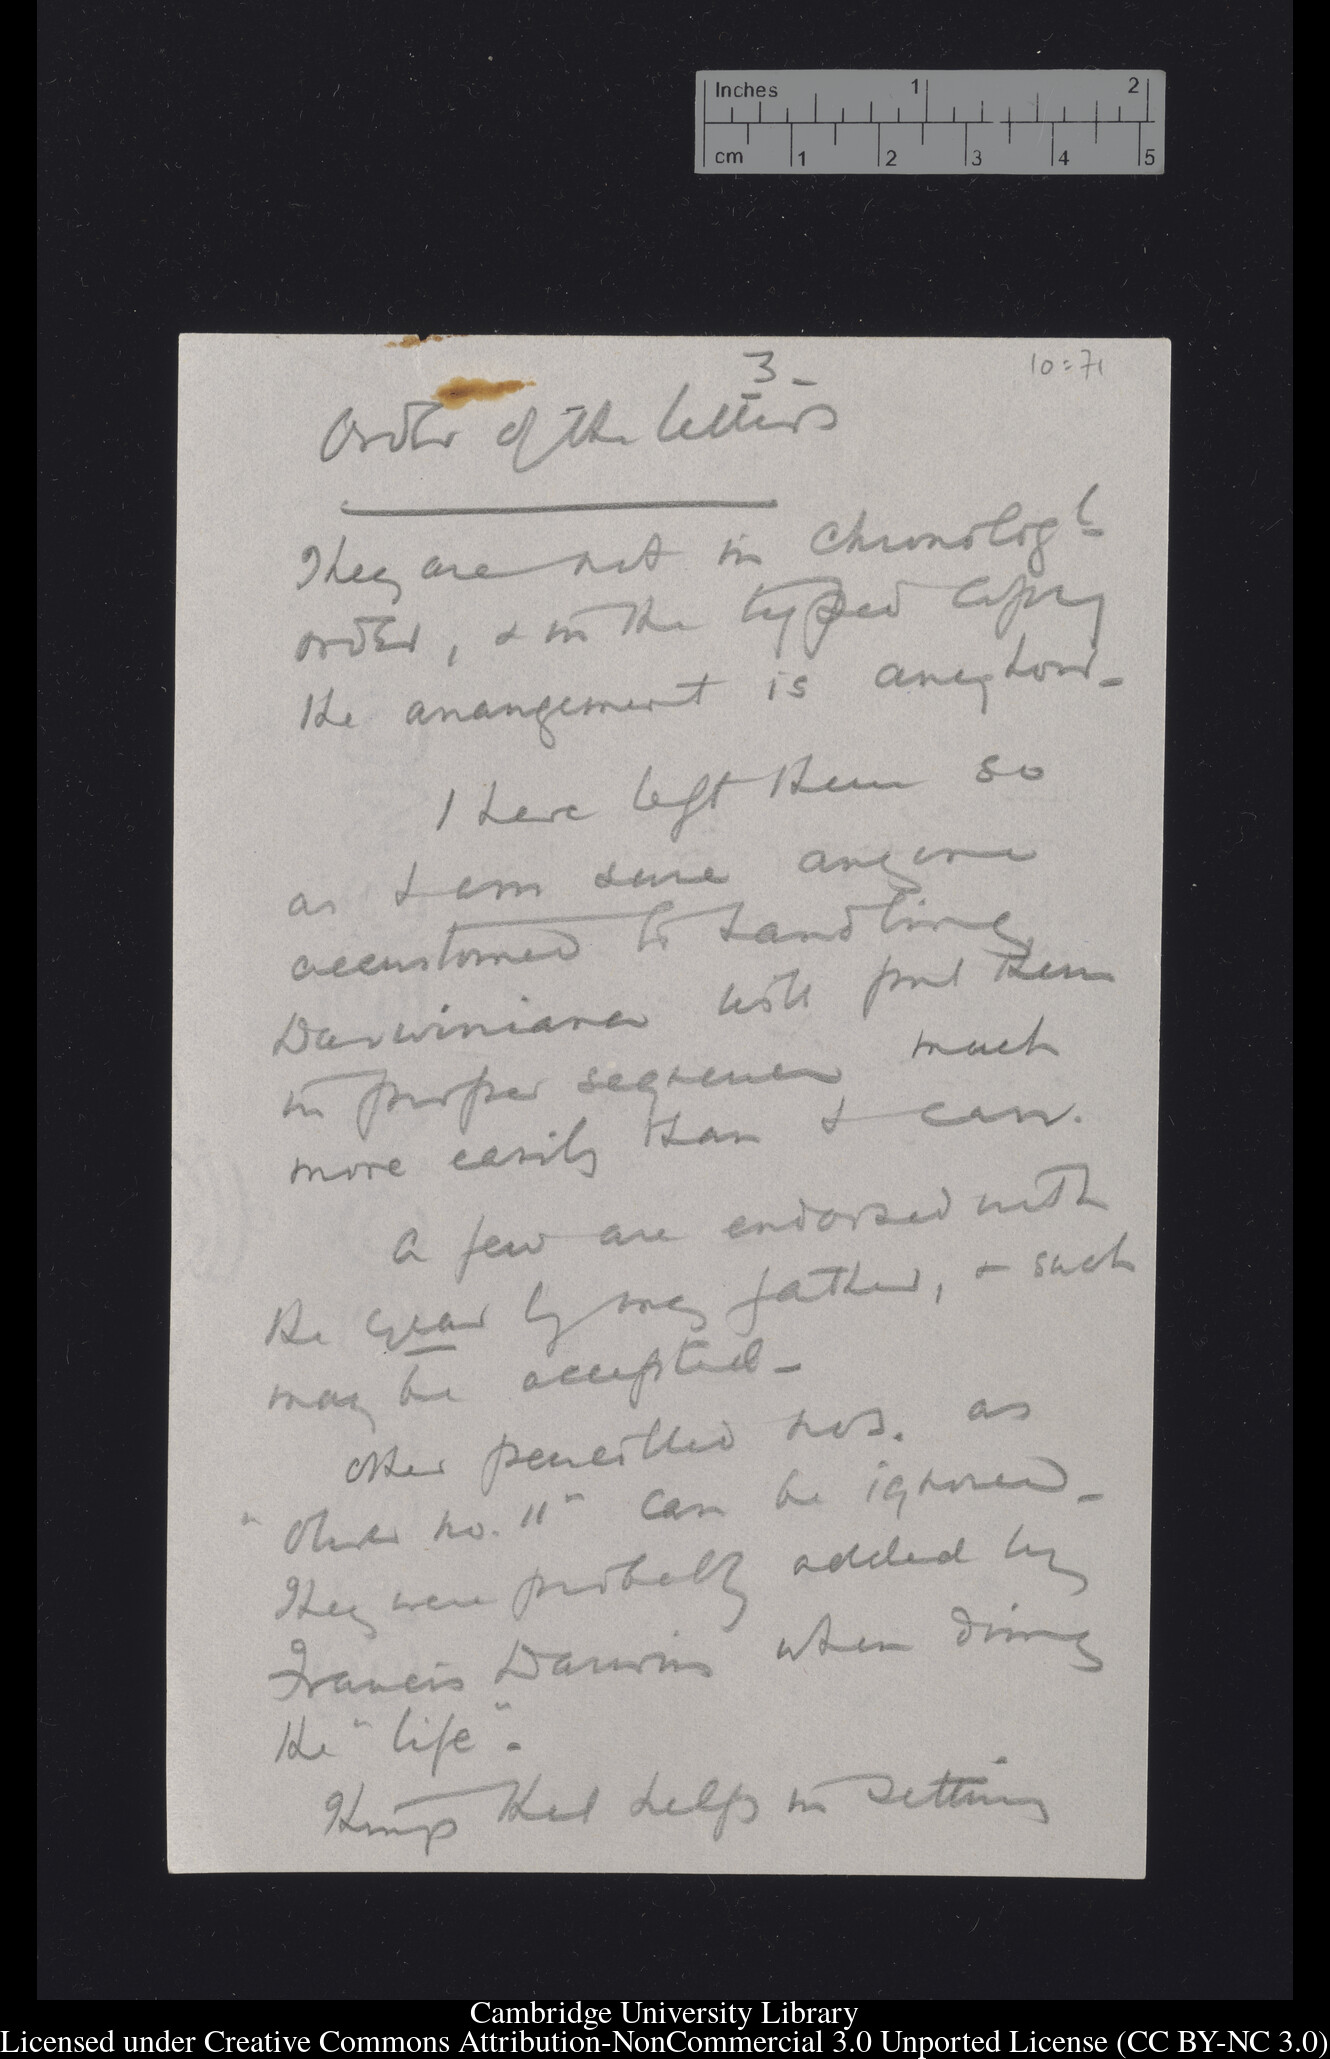 Inches 1 2
cm 1 2 3 4 5
10=71
3-
Order of the letters
They are not in Chronologl
order, & in the typed copy
the arrangement is anyhow-
I have left them so
as I am sure anyone
accustomed to handling
Darwiniana will put them
in proper sequence much
more easily than I can.
A few are endorsed with
the year by my father, & such
may be accepted-
Other pencilled nos. as
"Oliver no. 11" can be ignored-
They were probably added by
Francis Darwin when doing
the "life".
Things that help in setting
Cambridge University Library
Licensed under Creative Commons Attribution-NonCommercial 3.0 Unported License (CC BY-NC 3.0)